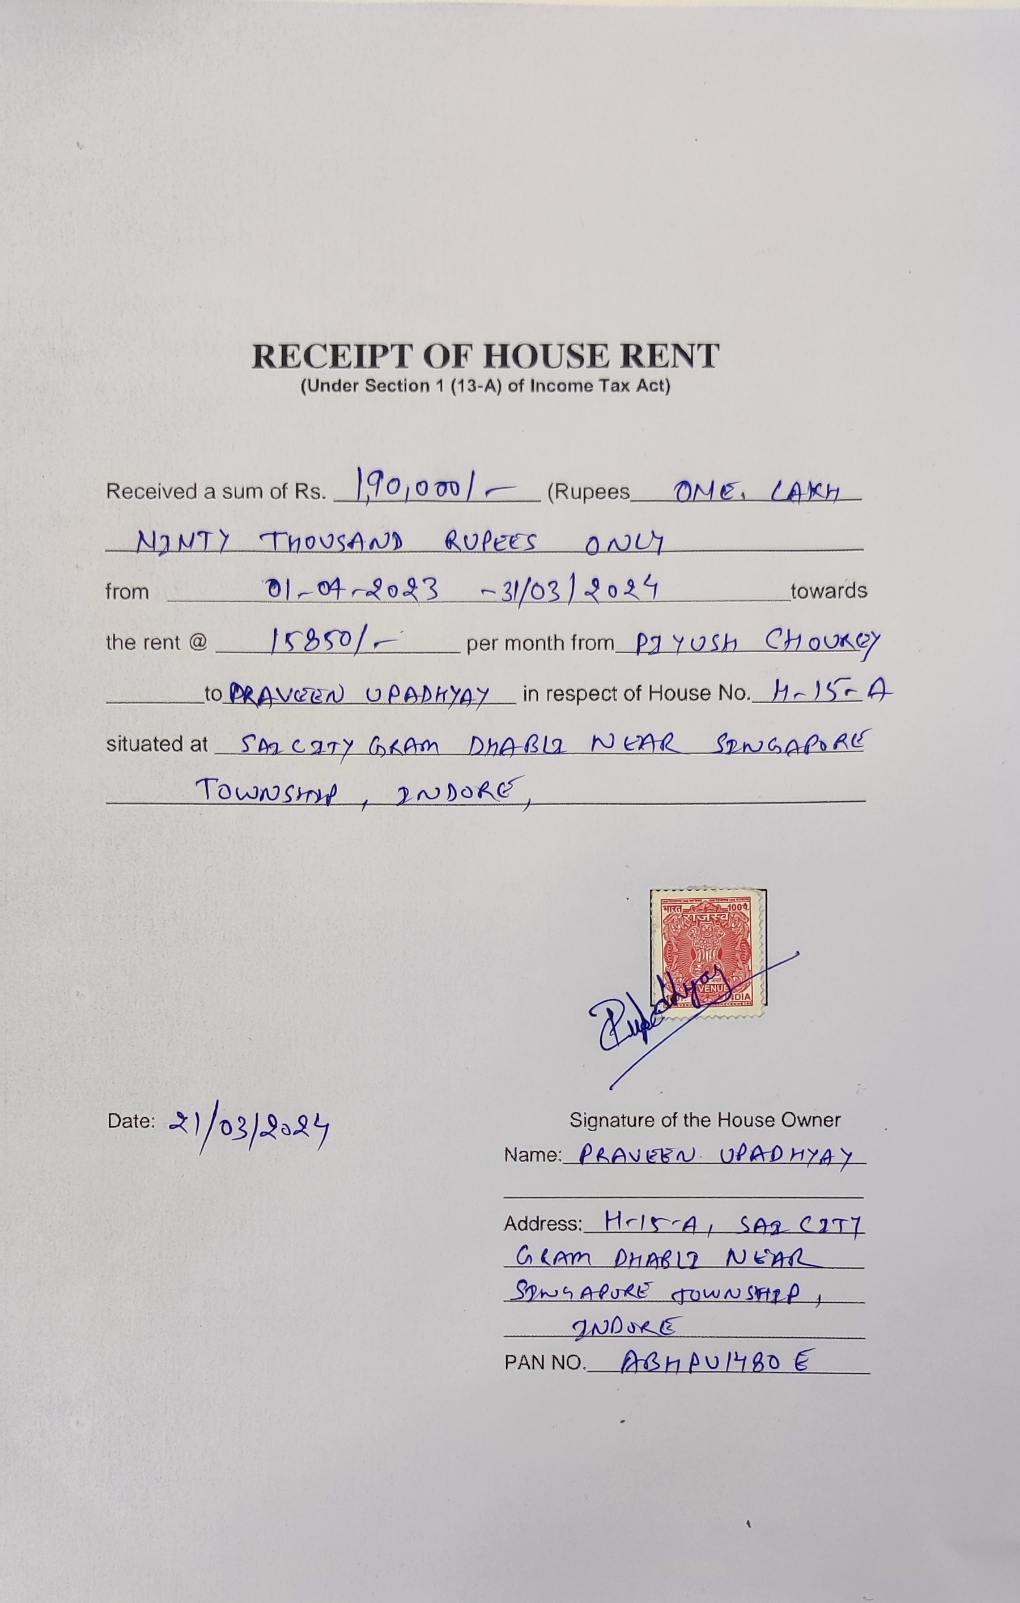 RECEIPT OF HOUSE RENT
(Under Section 1 (13-A) of Income Tax Act)
Received a sum of Rs. 1,90,000/- (Rupees ONE. LAKH
NINTY THOUSAND RUPEES ONLY
from 01-04-2023 -31/03/2024 towards
the rent @ 15850/- per month from PIYUSH CHOUREY
to PRAVEEN UPADHYAY in respect of House No. H-15-A
situated at SAI CITY GRAM DHABLI NEAR SINGAPORE
TOWNSHIP, INDORE,
भारत 100पै.
राजस्व
REVENUE
INDIA
PUpadhyay
Date: 21/03/2024
Signature of the House Owner
Name: PRAVEEN. UPADHYAY
Address: H-15-A, SAI CITY
GRAM DHABLI NEAR
SINGAPORE TOWNSHIP,
INDORE
PAN NO. ABHPU1480E